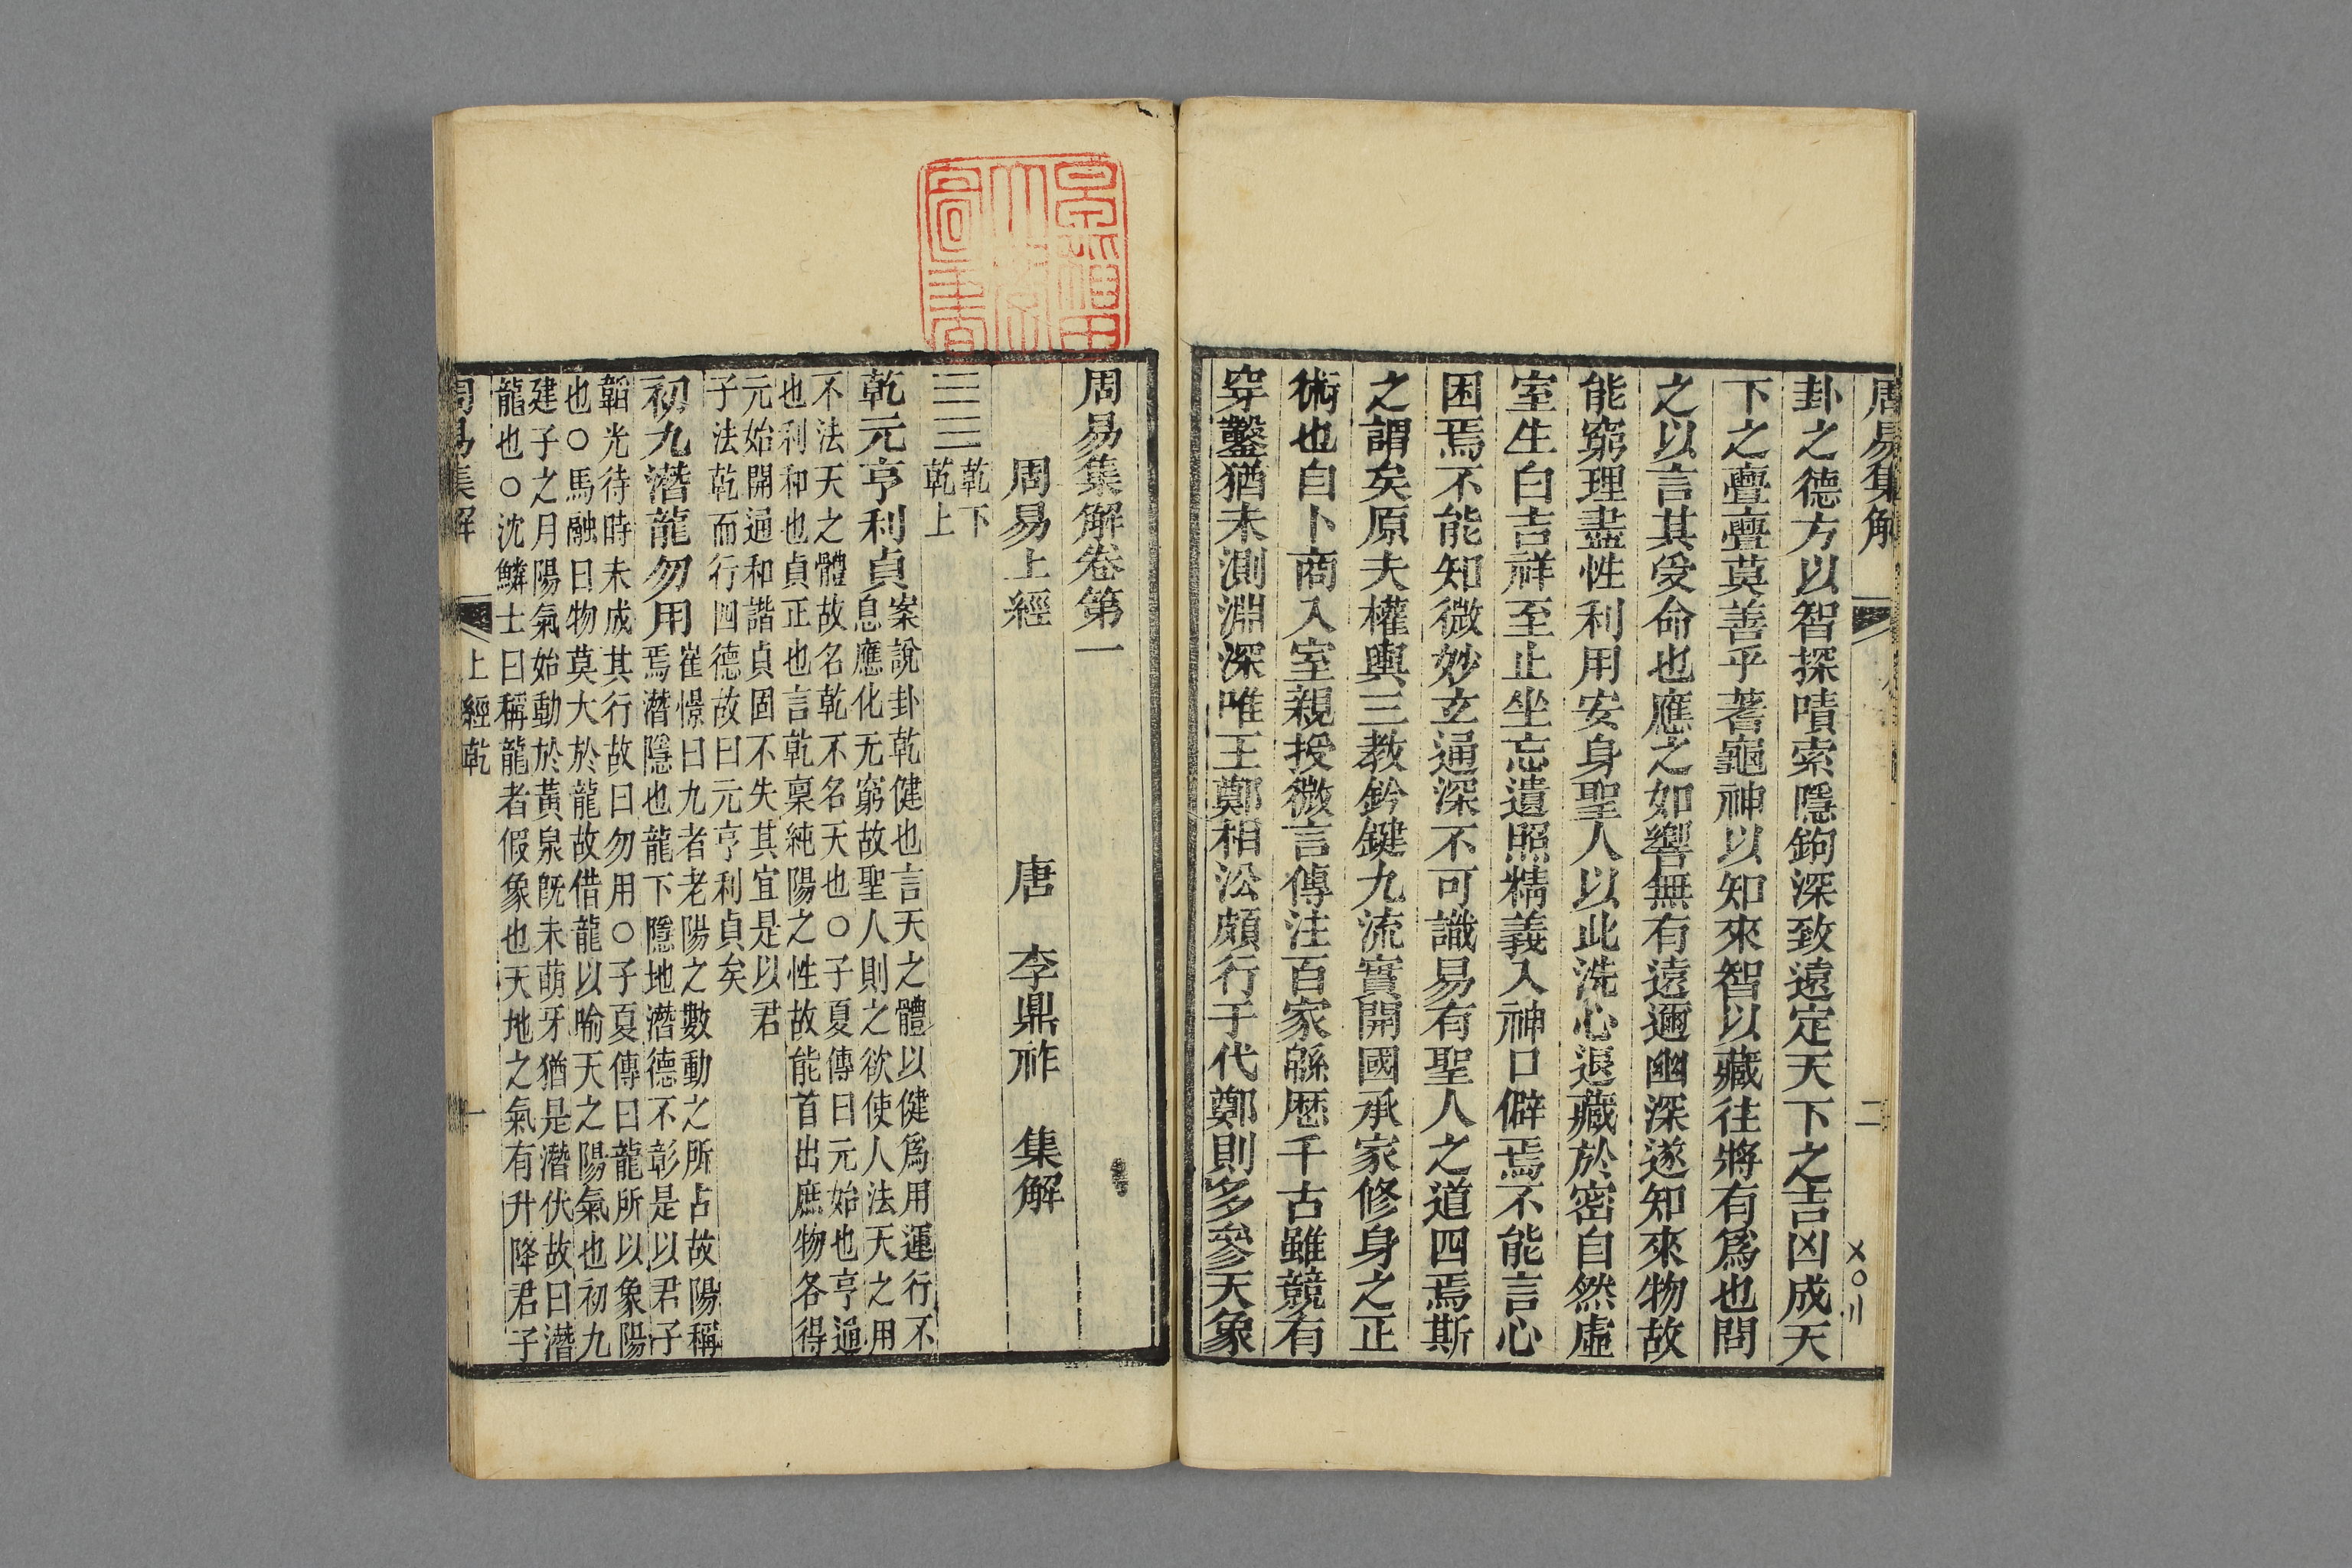 周易集解
二
卦之德方以智探嘖索隱鉤深致遠定天下之吉凶成天
下之亹亹莫善乎蓍龜神以知來智以藏往將有爲也問
之以言其受命也應之如響無有遠邇幽深遂知來物故
能窮理盡性利用安身聖人以此洗心退藏於密自然虛
室生白吉祥至止坐忘遺照精義入神口僻焉不能言心
困焉不能知微妙玄通深不可識易有聖人之道四焉斯
之謂矣原夫權輿三教鈐鍵九流實開國承家修身之正
術也自卜商入室親授微言傳注百家緜歷千古雖競有
穿鑿猶未測淵深唯王鄭相沿頗行于代鄭則多參天象
周易集解卷第一
周易上經
唐 李鼎祚 集解
乾下
乾上
乾元亨利貞
案說卦乾健也言天之體以健爲用運行不
息應化无窮故聖人則之欲使人法天之用
不法天之體故名乾不名天也○子夏傳曰元始也亨通
也利和也貞正也言乾稟純陽之性故能首出庶物各得
元始開通和諧貞固不失其宜是以君
子法乾而行四德故曰元亨利貞矣
初九潛龍勿用
崔憬曰九者老陽之數動之所占故陽稱
焉潛隱也龍下隱地潛德不彰是以君子
韜光待時未成其行故曰勿用○子夏傳曰龍所以象陽
也○馬融曰物莫大於龍故借龍以喻天之陽氣也初九
建子之月陽氣始動於黃泉旣未萌牙猶是潛伏故曰潛
龍也○沈驎士曰稱龍者假象也天地之氣有升降君子
周易集解
上經乾
一